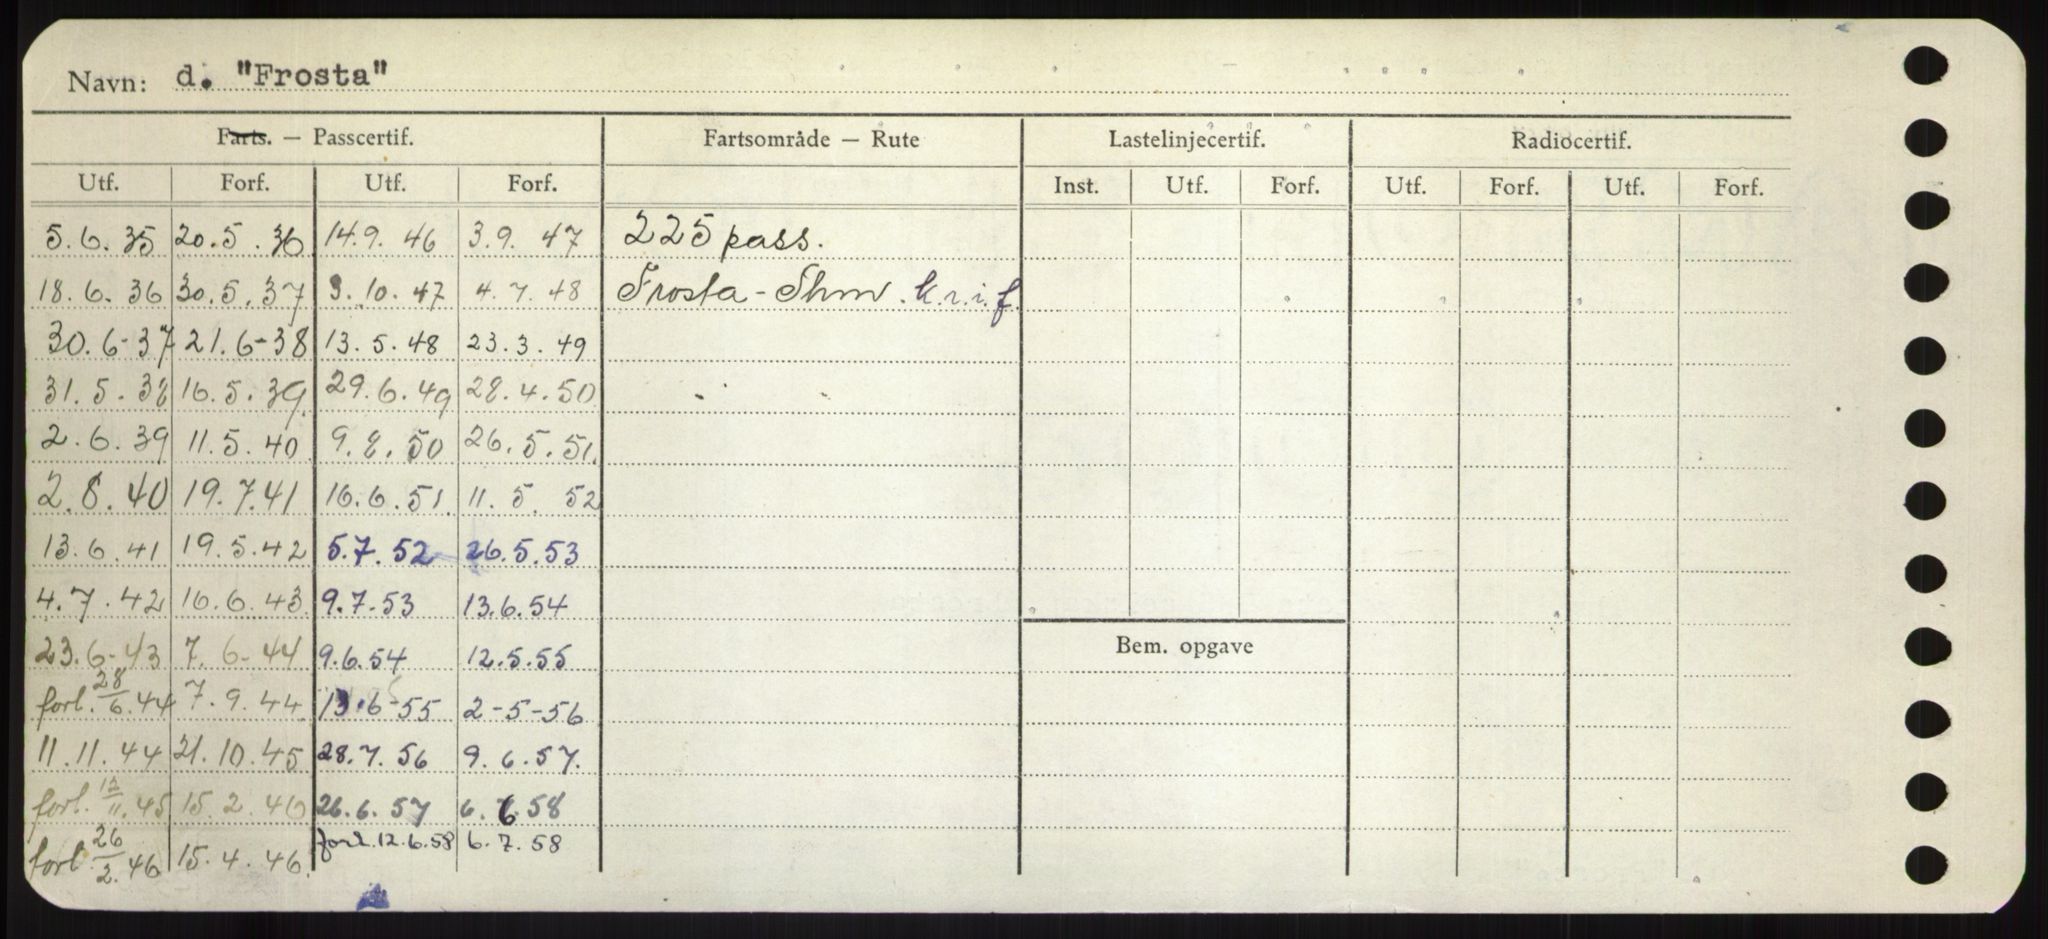 Navn: d. "Frosta"
Farts. — Passcertif. Fartsområde — Rute Lastelinjecertif. Radiocertif.
Utf. Forf. Utf. Forf. Inst. Utf. Forf. Utf. Forf. Utf. Forf.
5.6.35 20.5.36 14.9.46 3.9.47 225 pass.
18.6.36 30.5.37 3.10.47 4.7.48 Frosta - Thm. k.r.i.f.
30.6-37 21.6-38 13.5.48 23.3.49
31.5.38 16.5.39 29.6.49 28.4.50
2.6.39 11.5.40 9.8.50 26.5.51.
2.8.40 19.7.41 16.6.51. 11.5.52
13.6.41 19.5.42 5.7.52 26.5.53
4.7.42 16.6.43 9.7.53 13.6.54
23.6-43 7.6-44 9.6.54 12.5.55
Bem. opgave
forl. 28/6.44 7.9.44 13.6-55 2-5-56
11.11.44 31.10.45 28.7.56 9.6.57.
forl. 12/11.45 15.2.46 26.6.57 6.6.58
forl. 26/2.46 15.4.46. forl. 12.6.58 6.7.58